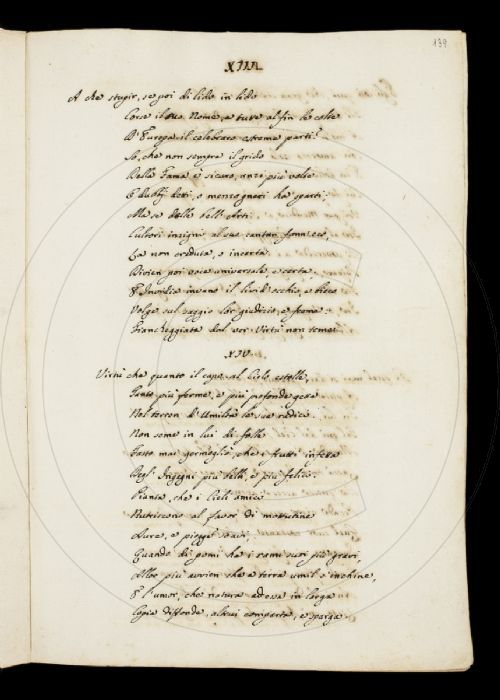 139
XIII
A che stupir, se poi di lido in lido
Corse il tuo Nome, e tutte al fin le colte
D'Europa il celebraro estreme parti?
So, che non sempre il grido
Della Fama è sicuro, anzi più volte
E dubbj detti, o menzogneri ha sparti;
Ma se delle bell'Arti
Cultori insigni al suo cantar fann'eco,
La non creduta, o incerta
Divien poi voce universale, e certa,
E Invidia invano il livid'occhio, e bieco
Volge sul saggio lor giudizio, e freme:
Fiancheggiata dal ver Virtù non teme.
XIV.
Virtù che quanto il capo al Cielo estolle,
Tanto più ferme, e più profonde
Nel terren d'Umiltà le sue radici.
Non seme in lui di folle
Fasto mai germogliò, che i frutti
Degl'Ingegni più belli, e più felici.
Pianta, che i Cieli amici
Nutriscono al favor di mattutine
Aure, e piogge soavi,
Quando di pomi ha i rami suoi più gravi,
Allor più avvien che a terra umil s'inchine,
E l'umor, che natura ad essa in larga
Copia diffonde, altrui comparta, e sparga.